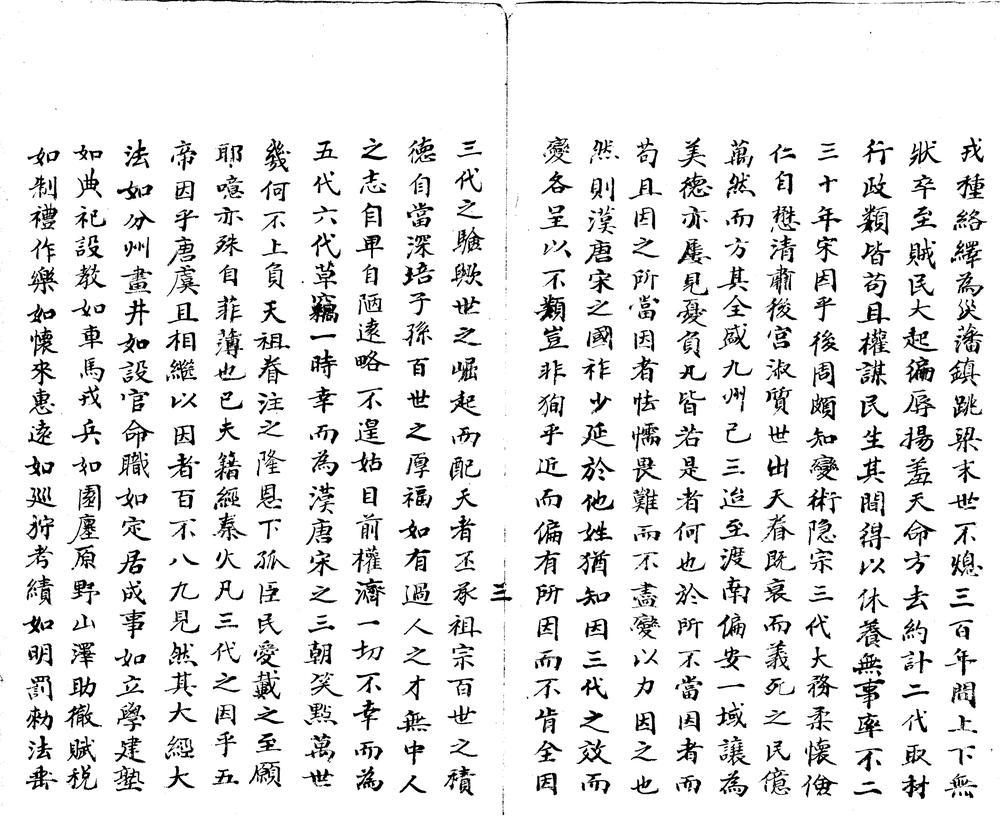 戎種絡繹為災藩鎮跳梁末世不熄三百年間上下無
狀卒至賊民大起徧辱揚羞天命方去約計二代取材
行政類皆苟且權謀民生其間得以休養無事率不二
三十年宋因乎後周頗知變術隐宗三代大務柔懷儉
仁自懋清肅後宮淑質世出天眷既衰而義死之民億
萬然而方其全盛九州已三迨至渡南偏安一域讓為
美德亦屢見憂負凡皆若是者何也於所不當因者而
苟且因之所當因者怯懦畏難而不盡變以力因之也
然則漢唐宋之國祚少延於他姓猶知因三代之效而
變各呈以不類豈非狥乎近而偏有所因而不肯全因
三
三代之驗歟世之崛起而配天者丕承祖宗百世之積
德自當深培子孫百世之厚福如有過人之才無中人
之志自畀自陋遠略不遑姑目前權濟一切不幸而為
五代六代草竊一時幸而為漢唐宋之三朝笑點萬世
幾何不上負天祖眷注之隆恩下孤臣民愛戴之至願
耶噫亦殊自菲薄也已夫籍經秦火凡三代之因乎五
帝因乎唐虞且相繼以因者百不八九見然其大經大
法如分州畫井如設官命職如定居成事如立學建塾
如典祀設教如車馬戎兵如園廛原野山澤助徹賦税
如制禮作樂如懷來惠遠如巡狩考績如明罰勑法垂